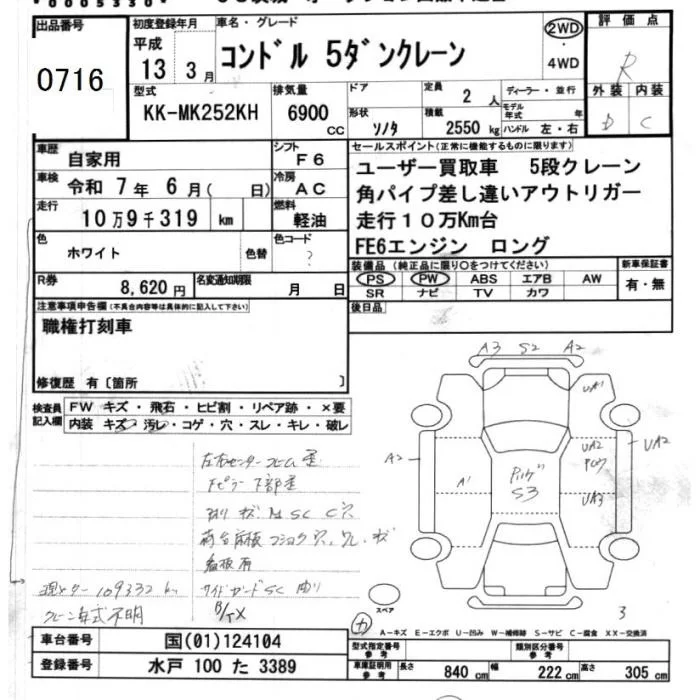 出品番号
0716
初度登録年月
平成
13 3月
車名・グレード
コンドル 5ダンクレーン
2WD
・
4WD
評価点
R
外装 内装
D C
型式
KK-MK252KH
排気量
6900 cc
ドア
形状
ソノタ
定員
2 人
積載
2550 kg
ディーラー・並行
モデル年式 年
ハンドル 左・右
車歴 自家用
シフト F6
車検 令和 7年 6月( 日)
冷房 AC
走行 10万9千319 km
燃料 軽油
色 ホワイト 色替
色コード ?
R券 8,620円
名変通知期限 月 日
セールスポイント(正常に機能するものに限ります)
ユーザー買取車 5段クレーン
角パイプ差し違いアウトリガー
走行10万Km台
FE6エンジン ロング
装備品(純正品に限り○をつけてください)
PS PW ABS エアB AW
SR ナビ TV カワ
新車保証書
有・無
後日品
注意事項申告欄(不具合内容等は具体的に記入して下さい)
職権打刻車
修復歴 有〔箇所 〕
検査員記入欄
FW キズ・飛石・ヒビ割・リペア跡・×要
内装 キズ・汚レ・コゲ・穴・スレ・キレ・破レ
A3 S2 A2
UA1
A2
A1
UA2
UA2
S3
UA3
下部歪
有
109332 km
クレーン年式不明
スペア
3
A-キズ E-エクボ U-凹み W-補修跡 S-サビ C-腐食 XX-交換済
車台番号 国(01)124104
登録番号 水戸 100 た 3389
型式指定番号 参考
類別区分番号 参考
車庫証明用 参考
長さ 840 cm 幅 222 cm 高さ 305 cm